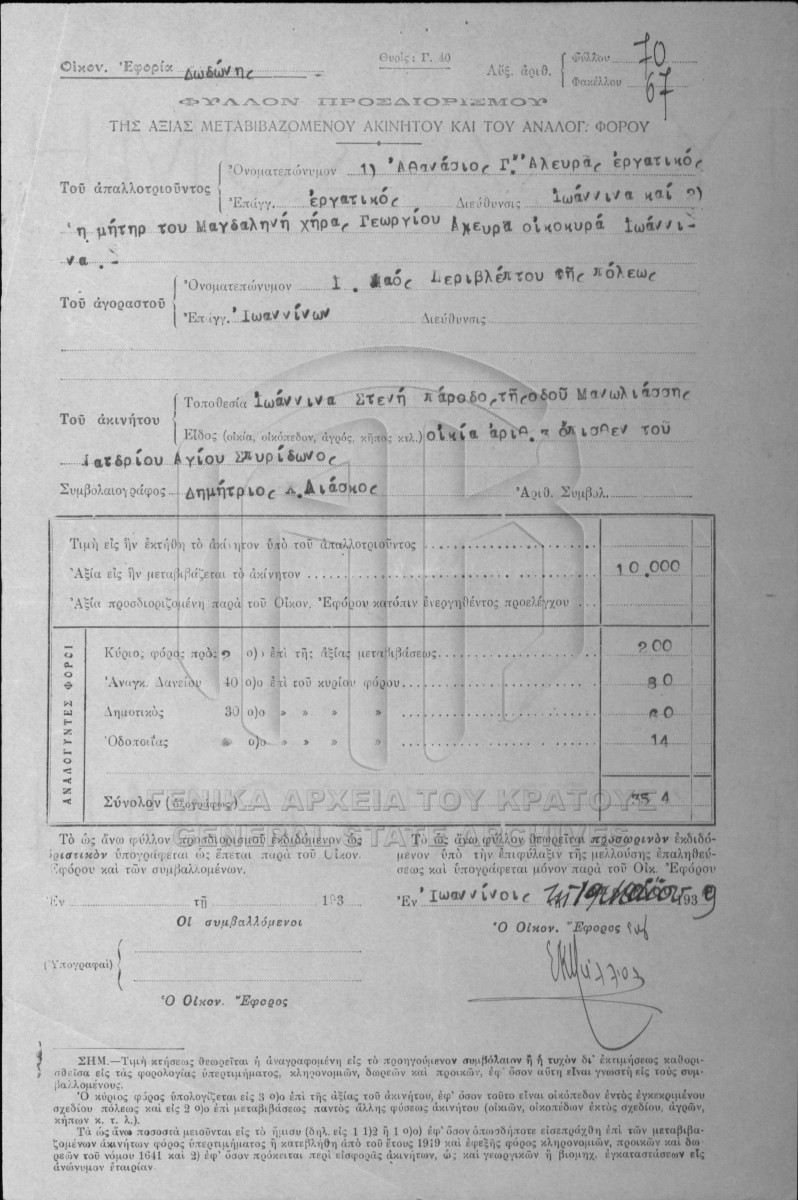 Οἰκον. Ἐφορία Δωδώνης
Θυρίς: Γ. 40
Αὔξ. ἀριθ. { Φύλλου 70
Φακέλλου 67
ΦΥΛΛΟΝ ΠΡΟΣΔΙΟΡΙΣΜΟΥ
ΤΗΣ ΑΞΙΑΣ ΜΕΤΑΒΙΒΑΖΟΜΕΝΟΥ ΑΚΙΝΗΤΟΥ ΚΑΙ ΤΟΥ ΑΝΑΛΟΓ. ΦΟΡΟΥ
Τοῦ ἀπαλλοτριοῦντος { Ὀνοματεπώνυμον 1) Ἀθανάσιος Γ. Ἀλευρᾶς ἐργατικός
Ἐπάγγ. ἐργατικός Διεύθυνσις Ἰωάννινα καί 2)
ἡ μήτηρ του Μαγδαληνή χήρα Γεωργίου Αλευρα οἰκοκυρά Ἰωάννι-
να.-
Τοῦ ἀγοραστοῦ { Ὀνοματεπώνυμον Ι. Ναός Περιβλέπτου τῆς πόλεως
Ἐπάγγ. Ἰωαννίνων Διεύθυνσις
Τοῦ ἀκινήτου { Τοποθεσία Ἰωάννινα Στενή πάροδος τῆς ὁδοῦ Μανωλιάσσης
Εἶδος (οἰκία, οἰκόπεδον, ἀγρός, κῆπος κτλ.) οἰκία ἀριθ. ὄπισθεν τοῦ
Ιατρίου Αγίου Σπυρίδωνος
Συμβολαιογράφος Δημήτριος Λιάσκος Ἀριθ. Συμβολ.
Τιμὴ εἰς ἣν ἐκτήθη τὸ ἀκίνητον ὑπὸ τοῦ ἀπαλλοτριοῦντος
Ἀξία εἰς ἣν μεταβιβάζεται τὸ ἀκίνητον 10.000
Ἀξία προσδιοριζομένη παρὰ τοῦ Οἰκον. Ἐφόρου κατόπιν ἐνεργηθέντος προελέγχου
ΑΝΑΛΟΓΟΥΝΤΕΣ ΦΟΡΟΙ
Κύριος φόρος πρὸς 2 ο)ο ἐπὶ τῆς ἀξίας μεταβιβάσεως 200
Ἀναγκ. Δανείου 40 ο)ο ἐπὶ τοῦ κυρίου φόρου 80
Δημοτικὸς 30 ο)ο » » » » 60
Ὁδοποιΐας ο)ο » » » » 14
Σύνολον (ὁλογράφως) 354
ΓΕΝΙΚΑ ΑΡΧΕΙΑ ΤΟΥ ΚΡΑΤΟΥΣ
GENERAL STATE ARCHIVES
Τὸ ὡς ἄνω φύλλον προσδιορισμοῦ ἐκδιδόμενον ὡς
ὁριστικὸν ὑπογράφεται ὡς ἔπεται παρὰ τοῦ Οἰκον.
Ἐφόρου καὶ τῶν συμβαλλομένων.
Ἐν τῇ 193
Οἱ συμβαλλόμενοι
(Ὑπογραφαὶ) {
Ὁ Οἰκον. Ἔφορος
Τὸ ὡς ἄνω φύλλον θεωρεῖται προσωρινὸν ἐκδιδό-
μενον ὑπὸ τὴν ἐπιφύλαξιν τῆς μελλούσης ἐπαληθεύ-
σεως καὶ ὑπογράφεται μόνον παρὰ τοῦ Οἰκ. Ἐφόρου
Ἐν Ἰωαννίνοις τῇ 193 9
Ὁ Οἰκον. Ἔφορος
ΣΗΜ.—Τιμὴ κτήσεως θεωρεῖται ἡ ἀναγραφομένη εἰς τὸ προηγούμενον συμβόλαιον ἢ ἡ τυχὸν δι' ἐκτιμήσεως καθορι-
σθεῖσα εἰς τὰς φορολογίας ὑπερτιμήματος, κληρονομιῶν, δωρεῶν καὶ προικῶν, ἐφ' ὅσον αὕτη εἶναι γνωστὴ εἰς τοὺς συμ-
βαλλομένους.
Ὁ κύριος φόρος ὑπολογίζεται εἰς 3 ο)ο ἐπὶ τῆς ἀξίας τοῦ ἀκινήτου, ἐφ' ὅσον τοῦτο εἶναι οἰκόπεδον ἐντὸς ἐγκεκριμένου
σχεδίου πόλεως καὶ εἰς 2 ο)ο ἐπὶ μεταβιβάσεως παντὸς ἄλλης φύσεως ἀκινήτου (οἰκιῶν, οἰκοπέδων ἐκτὸς σχεδίου, ἀγρῶν,
κήπων κ. τ. λ.).
Τὰ ὡς ἄνω ποσοστὰ μειοῦνται εἰς τὸ ἥμισυ (δηλ. εἰς 1 1)2 ἢ 1 ο)ο) ἐφ' ὅσον ὁπωσδήποτε εἰσεπράχθη ἐπὶ τῶν μεταβιβα-
ζομένων ἀκινήτων φόρος ὑπερτιμήματος ἢ κατεβλήθη ἀπὸ τοῦ ἔτους 1919 καὶ ἐφεξῆς φόρος κληρονομιῶν, προικῶν καὶ δω-
ρεῶν τοῦ νόμου 1641 καὶ 2) ἐφ' ὅσον πρόκειται περὶ εἰσφορᾶς ἀκινήτων, ὡς καὶ γεωργικῶν ἢ βιομηχ. ἐγκαταστάσεων εἰς
ἀνώνυμον ἑταιρίαν.